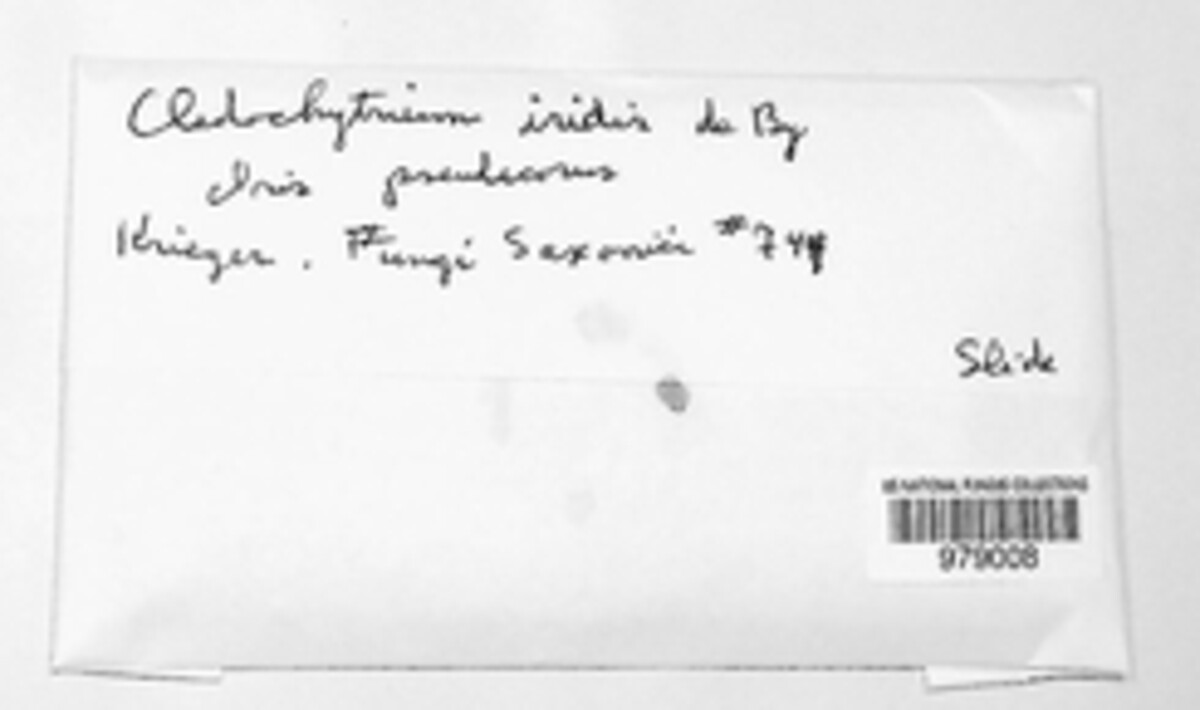 Cladochytrium iridis de By
Iris pseudacorus
Krieger. Fungi Saxonici #744
Slide
US NATIONAL FUNGUS COLLECTIONS
979008